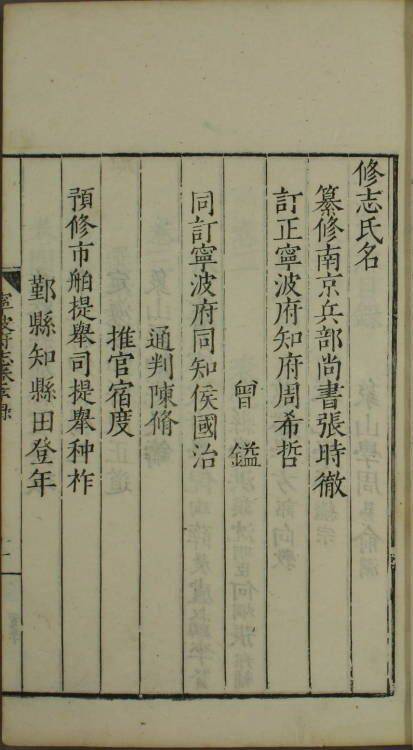 修志氏名
纂修南京兵部尚書張時徹
訂正寧波府知府周希哲
曾鎰
同訂寧波府同知侯國治
通判陳脩
推官宿度
預修市舶提舉司提舉种柞
鄞縣知縣田登年
寧波府志